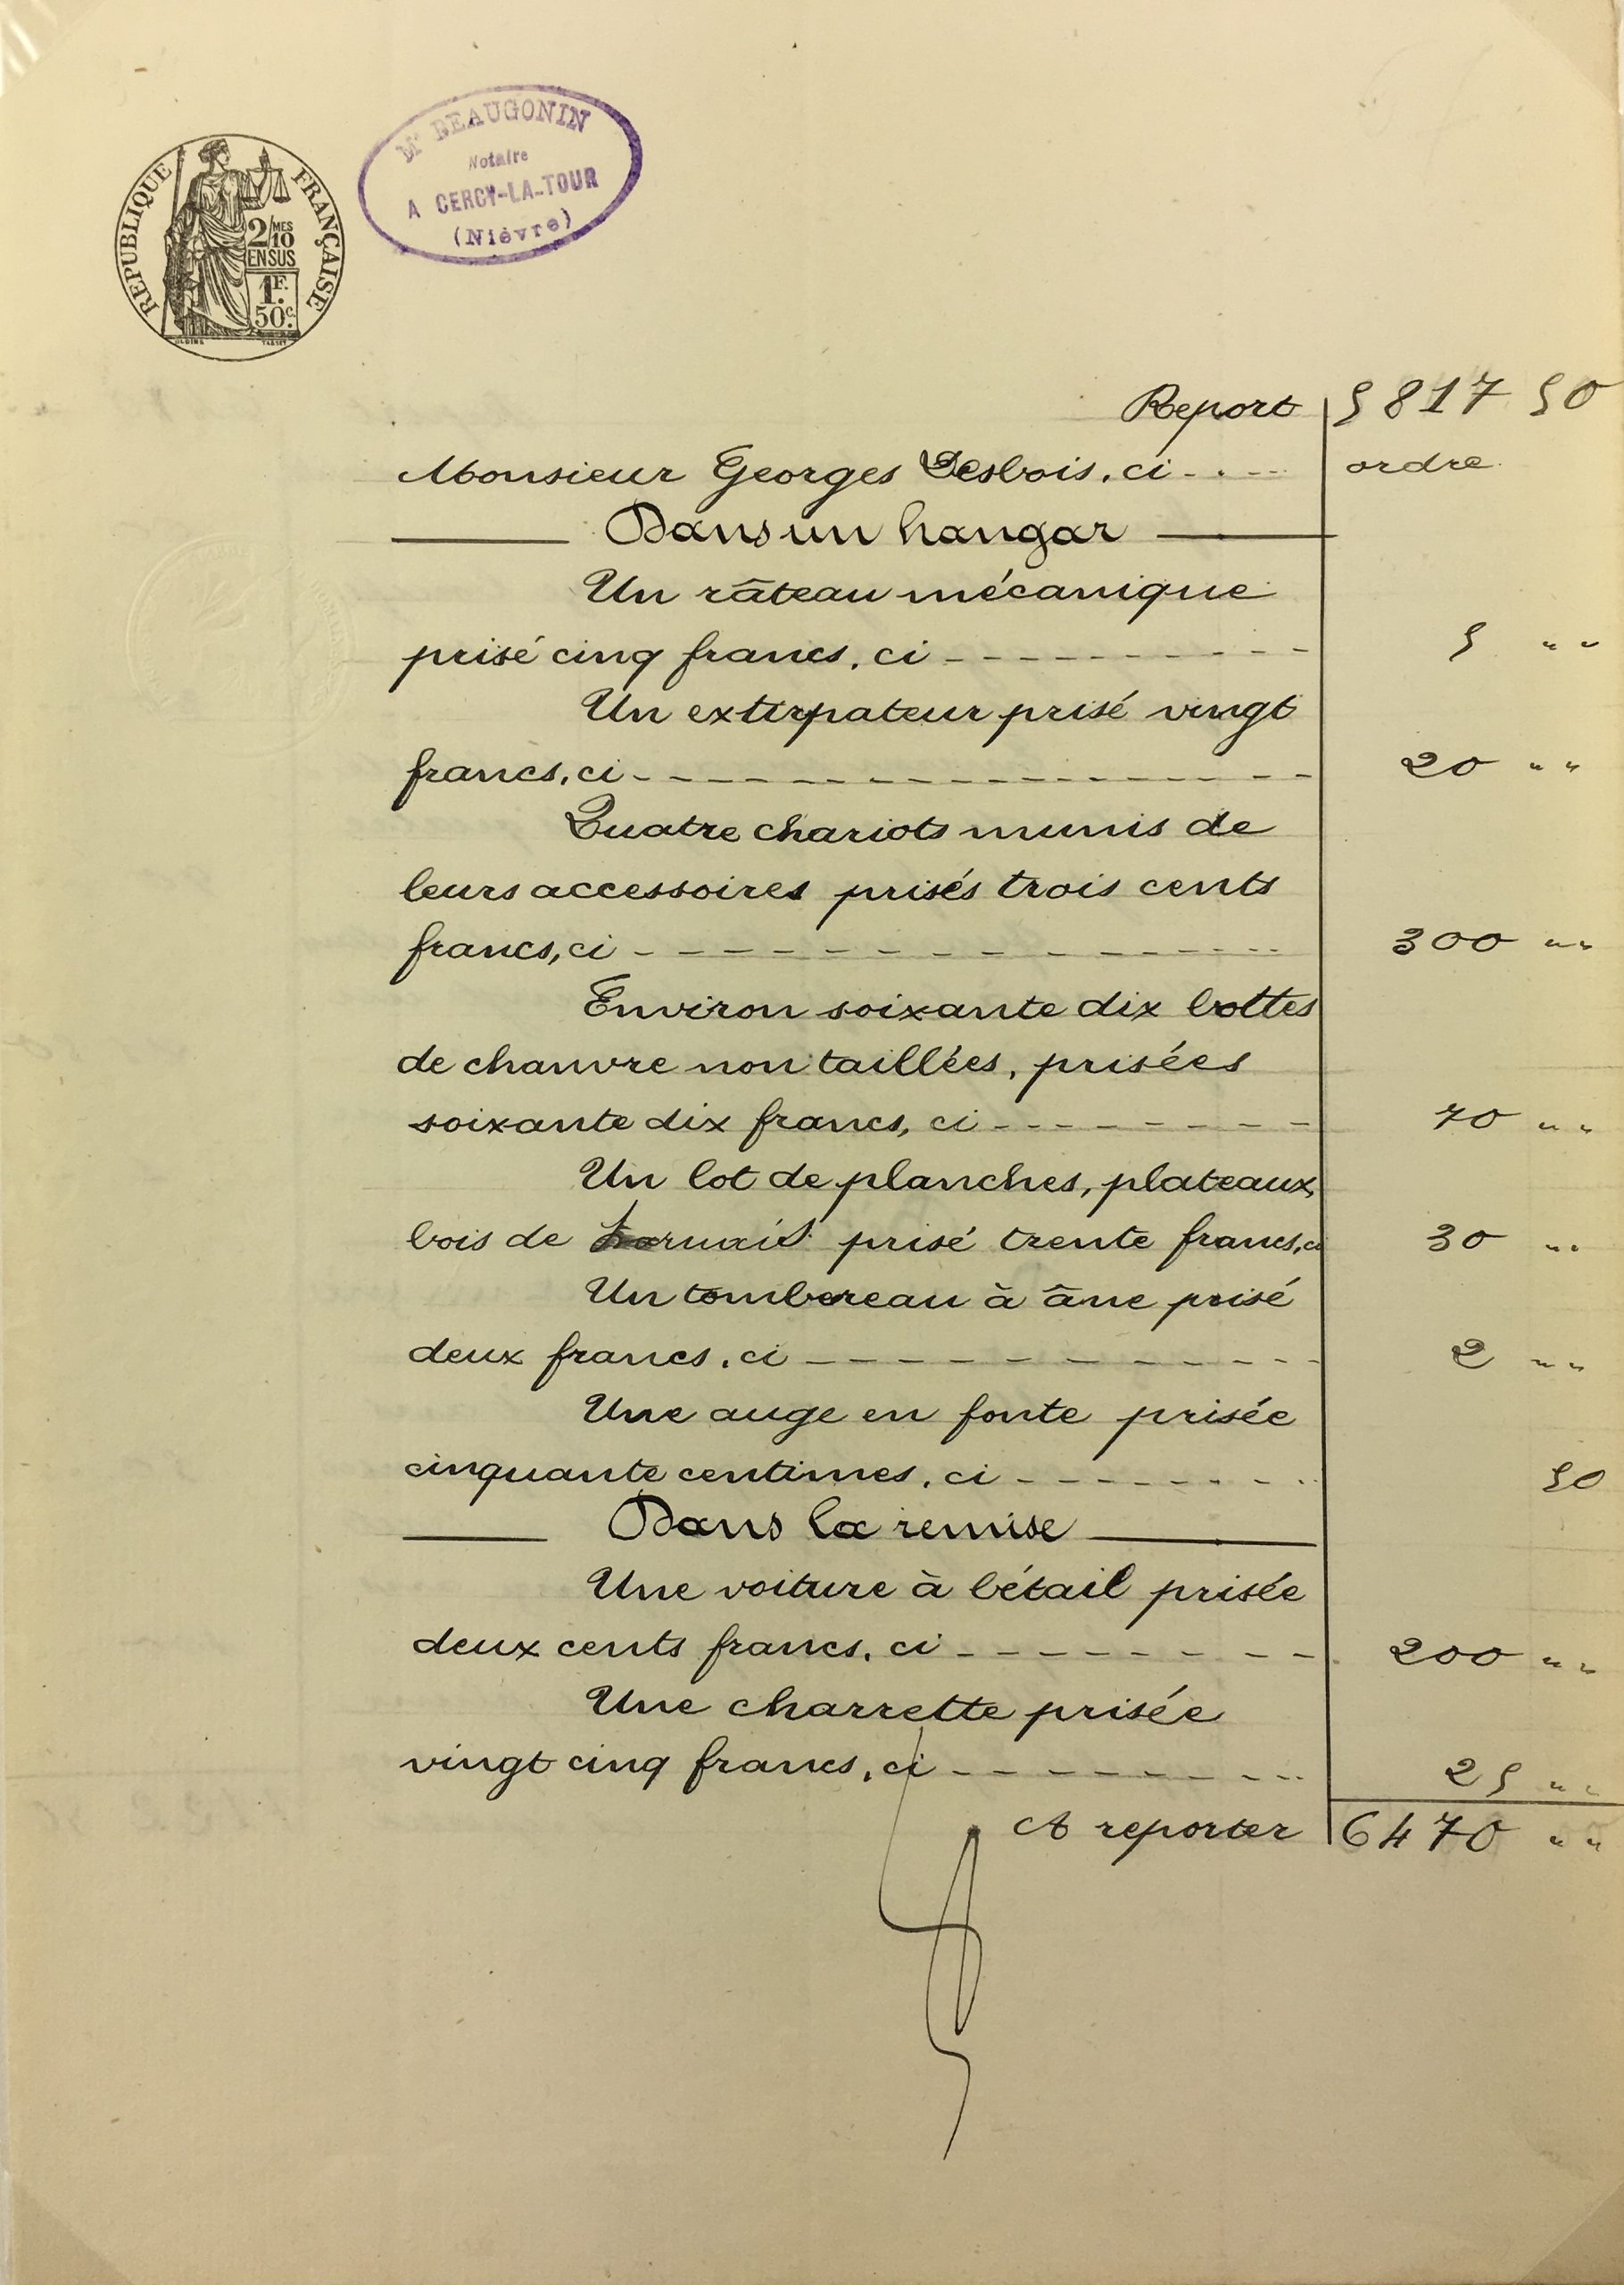 RÉPUBLIQUE FRANÇAISE
2/MES 10
EN SUS
1F.
50c.
Me BEAUGONIN
Notaire
A CERCY-LA-TOUR
(Nièvre)
Report 5817 50
Monsieur Georges Desbois, ci - . - - ordre
Dans un hangar
Un râteau mécanique
prisé cinq francs, ci - - - - - - - - - - 5 " "
Un extirpateur prisé vingt
francs, ci - - - - - - - - - - - - - - - - 20 " "
Quatre chariots munis de
leurs accessoires prisés trois cents
francs, ci - - - - - - - - - - - - - - - 300 " "
Environ soixante dix bottes
de chanvre non taillées, prisées
soixante dix francs, ci - - - - - - - - 70 " "
Un lot de planches, plateaux,
bois de prisé trente francs, ci 30 " "
Un tombereau à âne prisé
deux francs, ci - - - - - - - - - - - - 2 " "
Une auge en fonte prisée
cinquante centimes, ci - - - - - - - - 50
Dans la remise
Une voiture à bétail prisée
deux cents francs, ci - - - - - - - - 200 " "
Une charrette prisée
vingt cinq francs, ci - - - - - - - - - 25 " "
A reporter 6470 " "